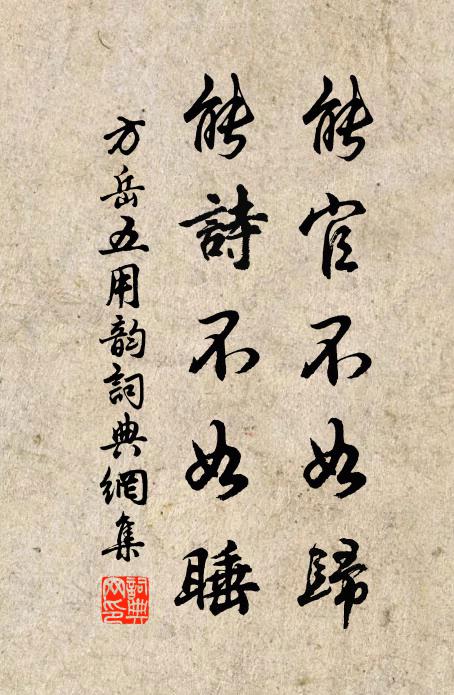 能官不如歸
能詩不如睡
方岳五用韵詞典網集
詞典網印